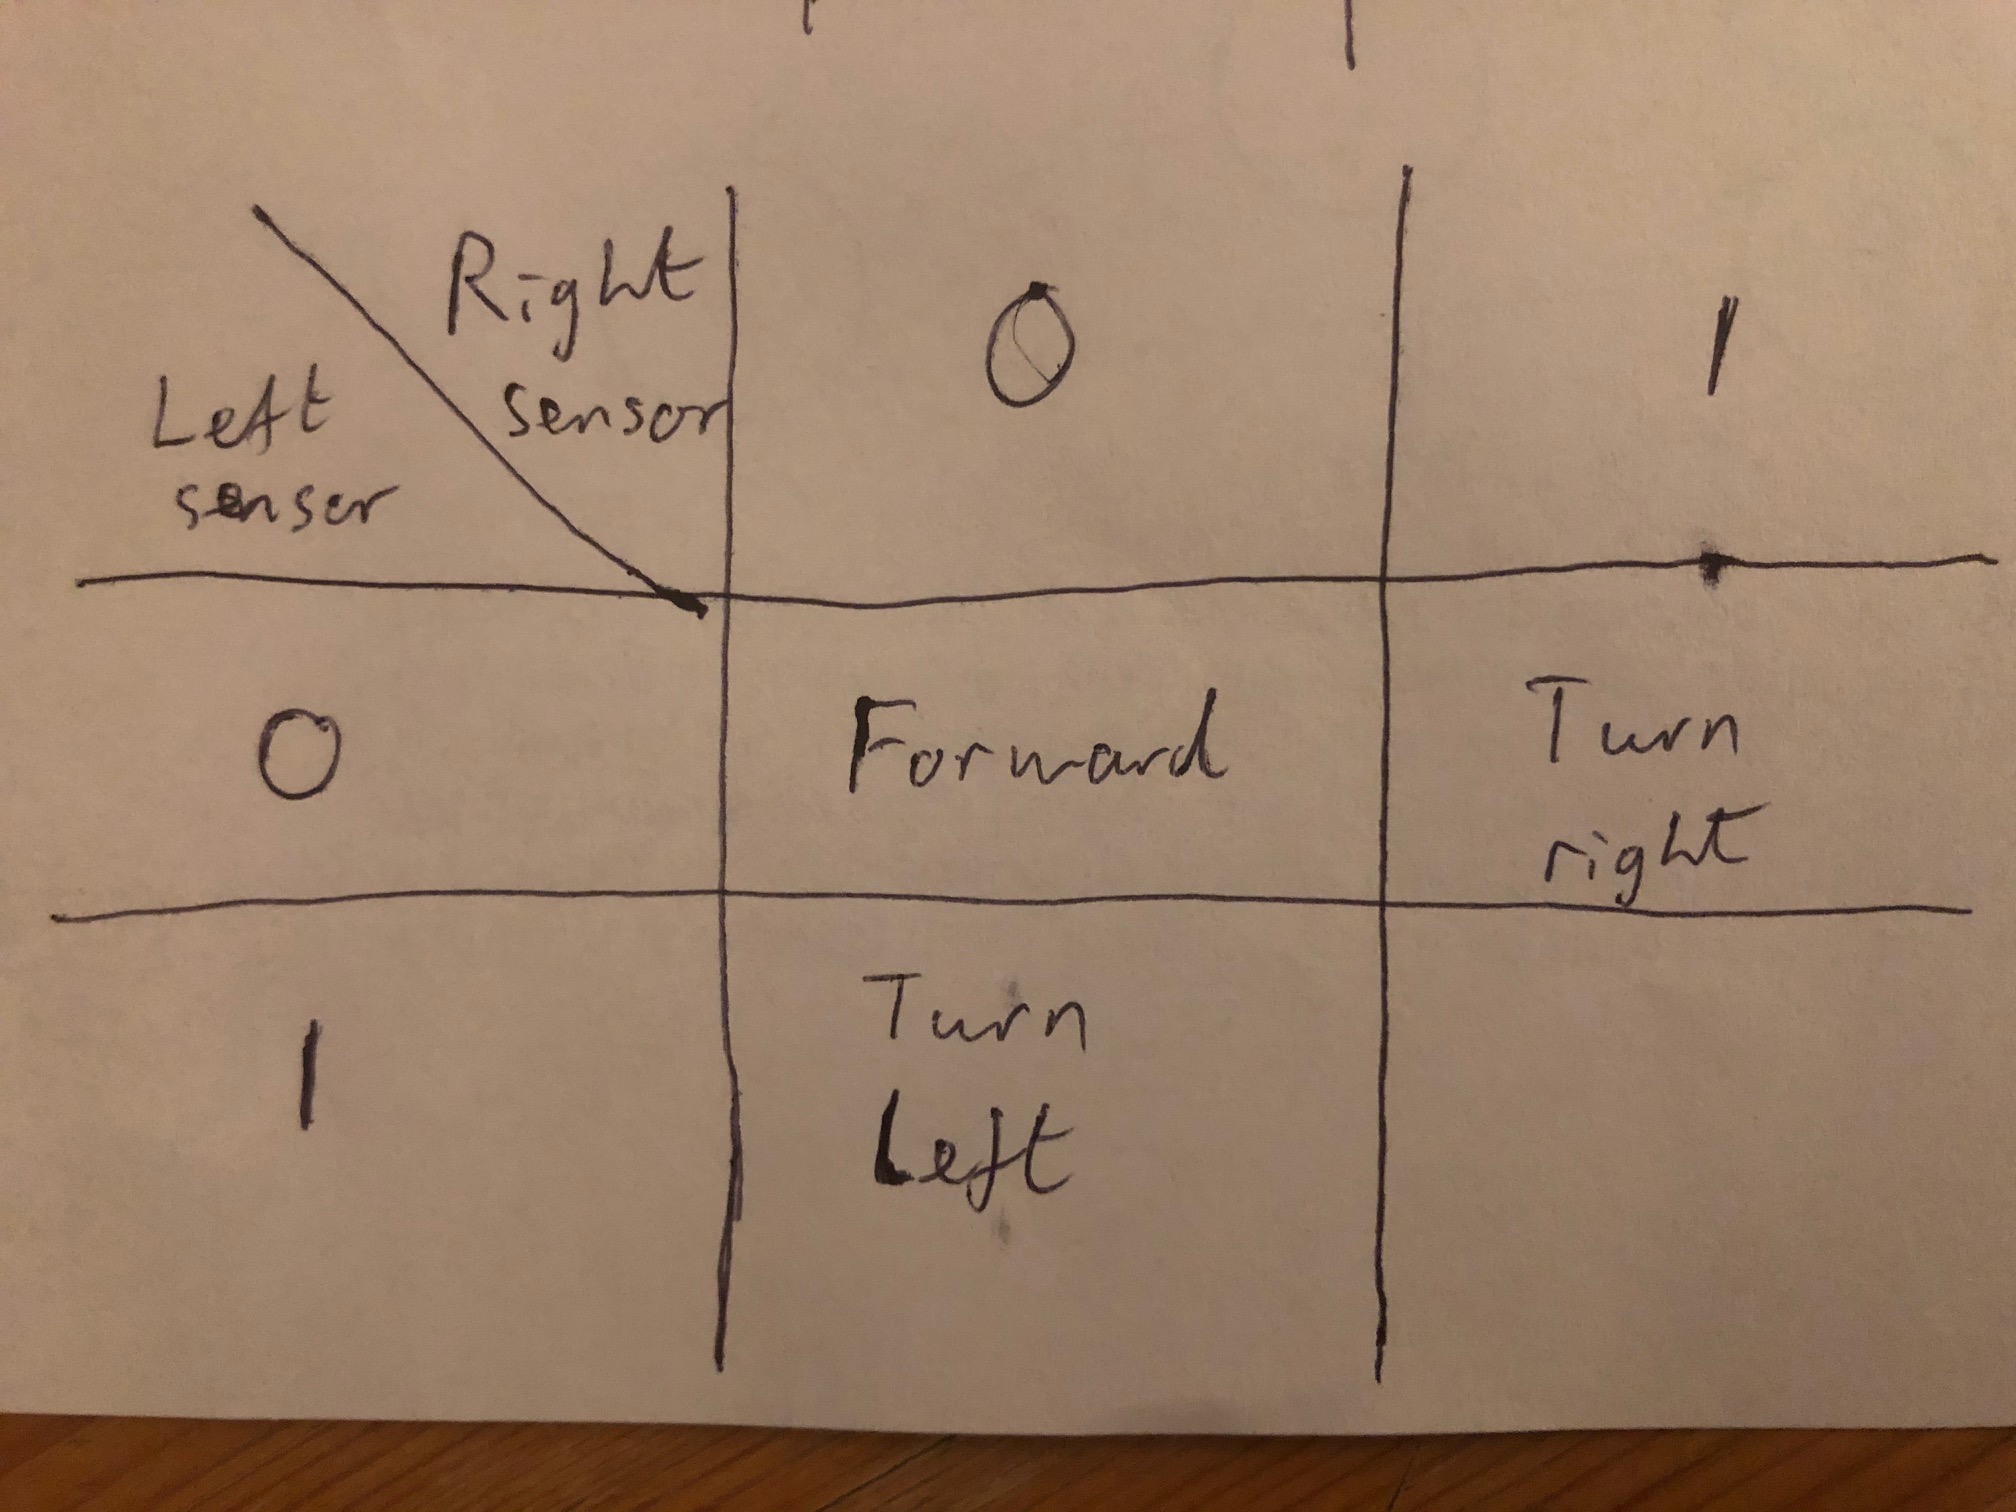 Right
sensor
Left
sensor
0
1
0
Forward
Turn
right
1
Turn
Left